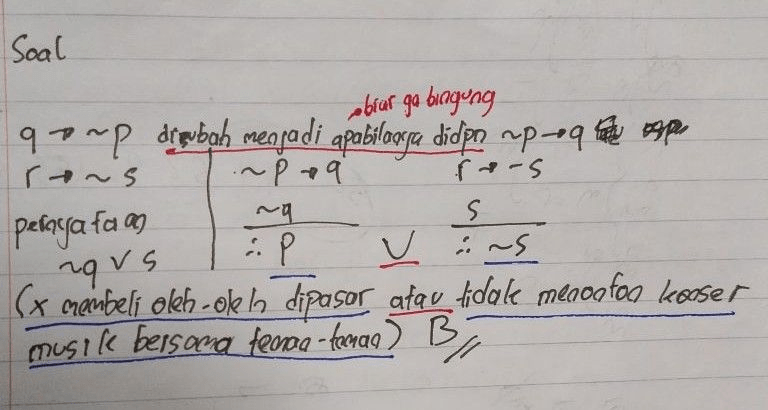 Soal
biar ga bingung
q → ~p dirubah menjadi apabilanya didpn ~p → q
r → ~s
~p → q
r → ~s
pernyataan
~q
s
~q ∨ s
∴ p
∨
∴ ~s
(x membeli oleh-oleh dipasar atau tidak menonton konser
musik bersama teman-teman) B //